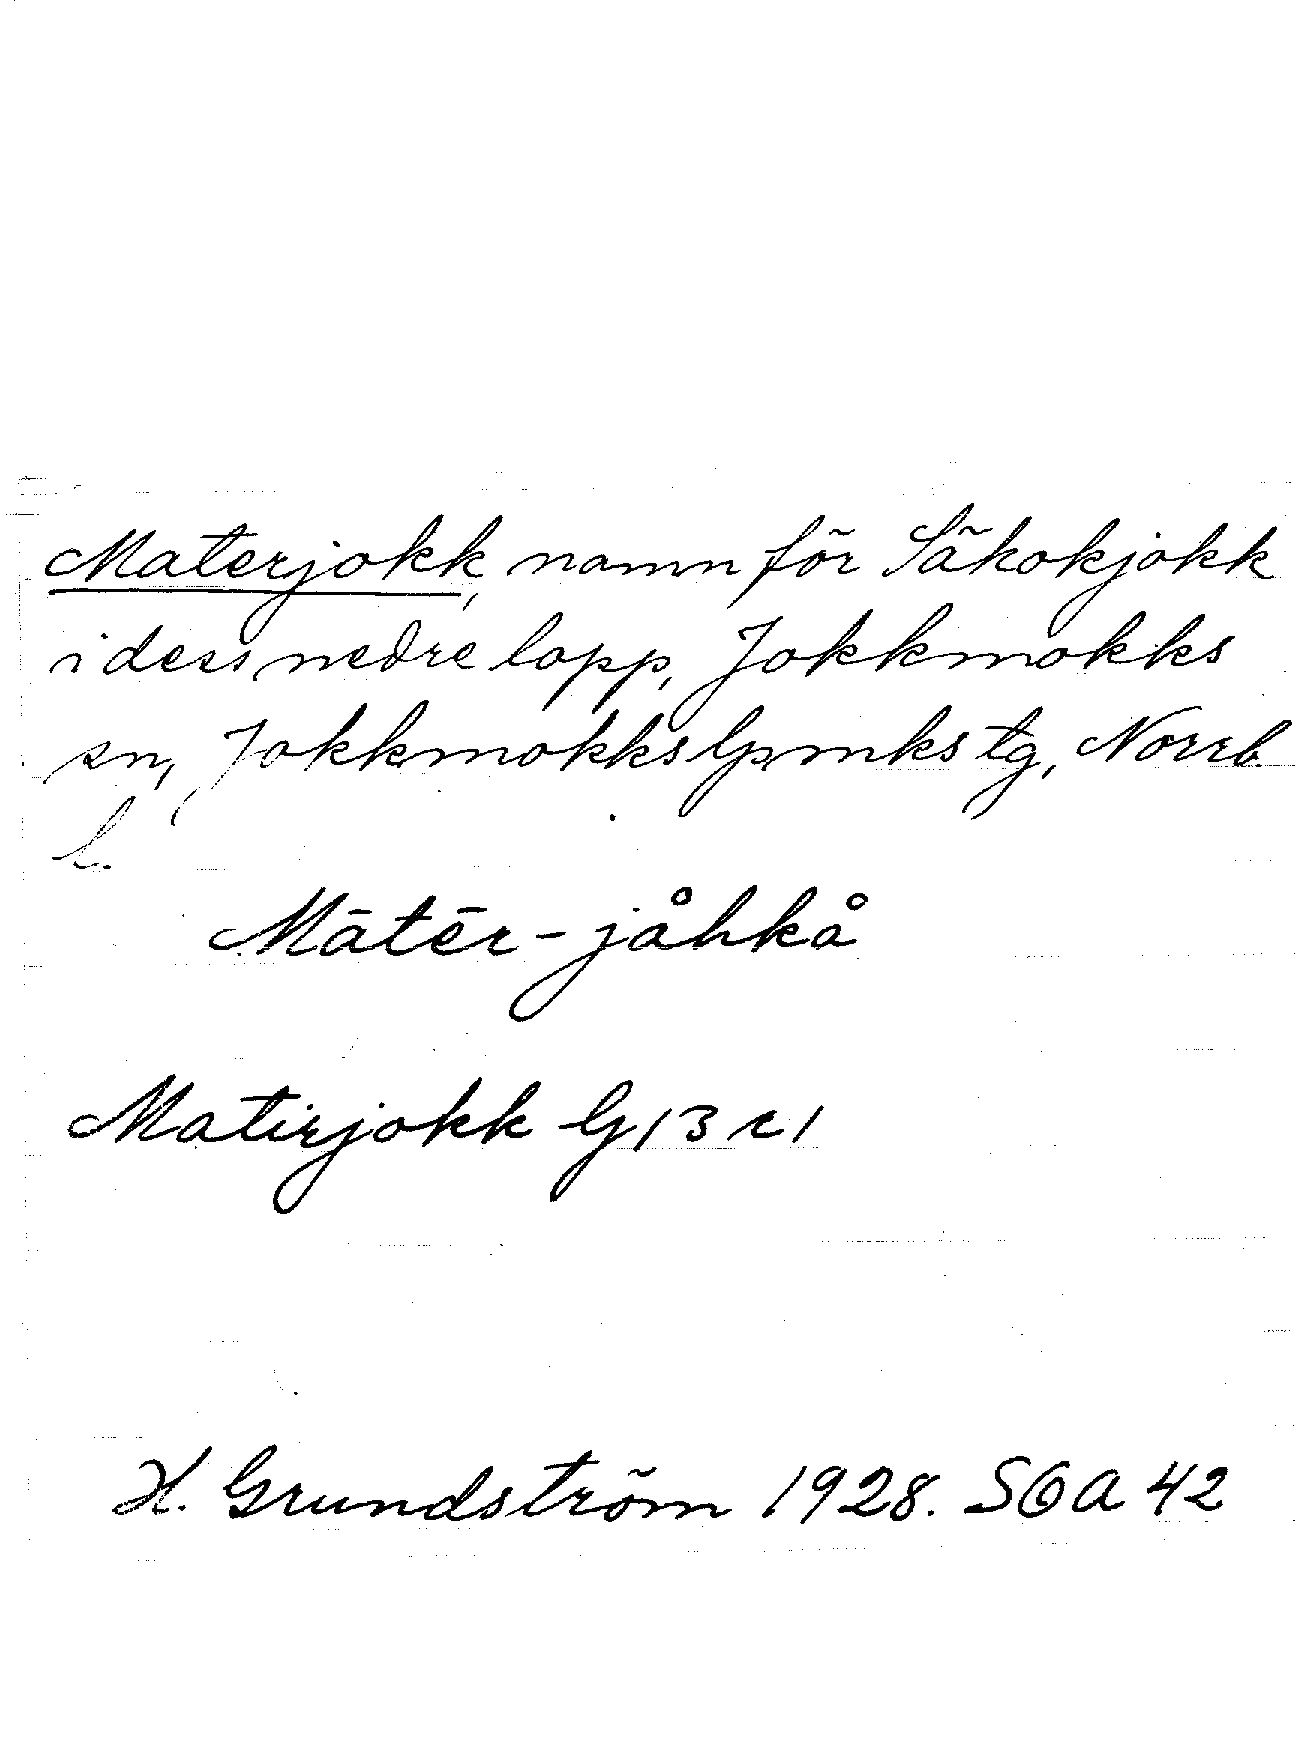 Materjokk, namn för Säkokjokk
i dess nedre lopp, Jokkmokks
sn, Jokkmokks lpmks tg, Norrb.
l.
Mātēr-jåhkå
Matirjokk G 13 r 1
H. Grundström 1928. SOA 42